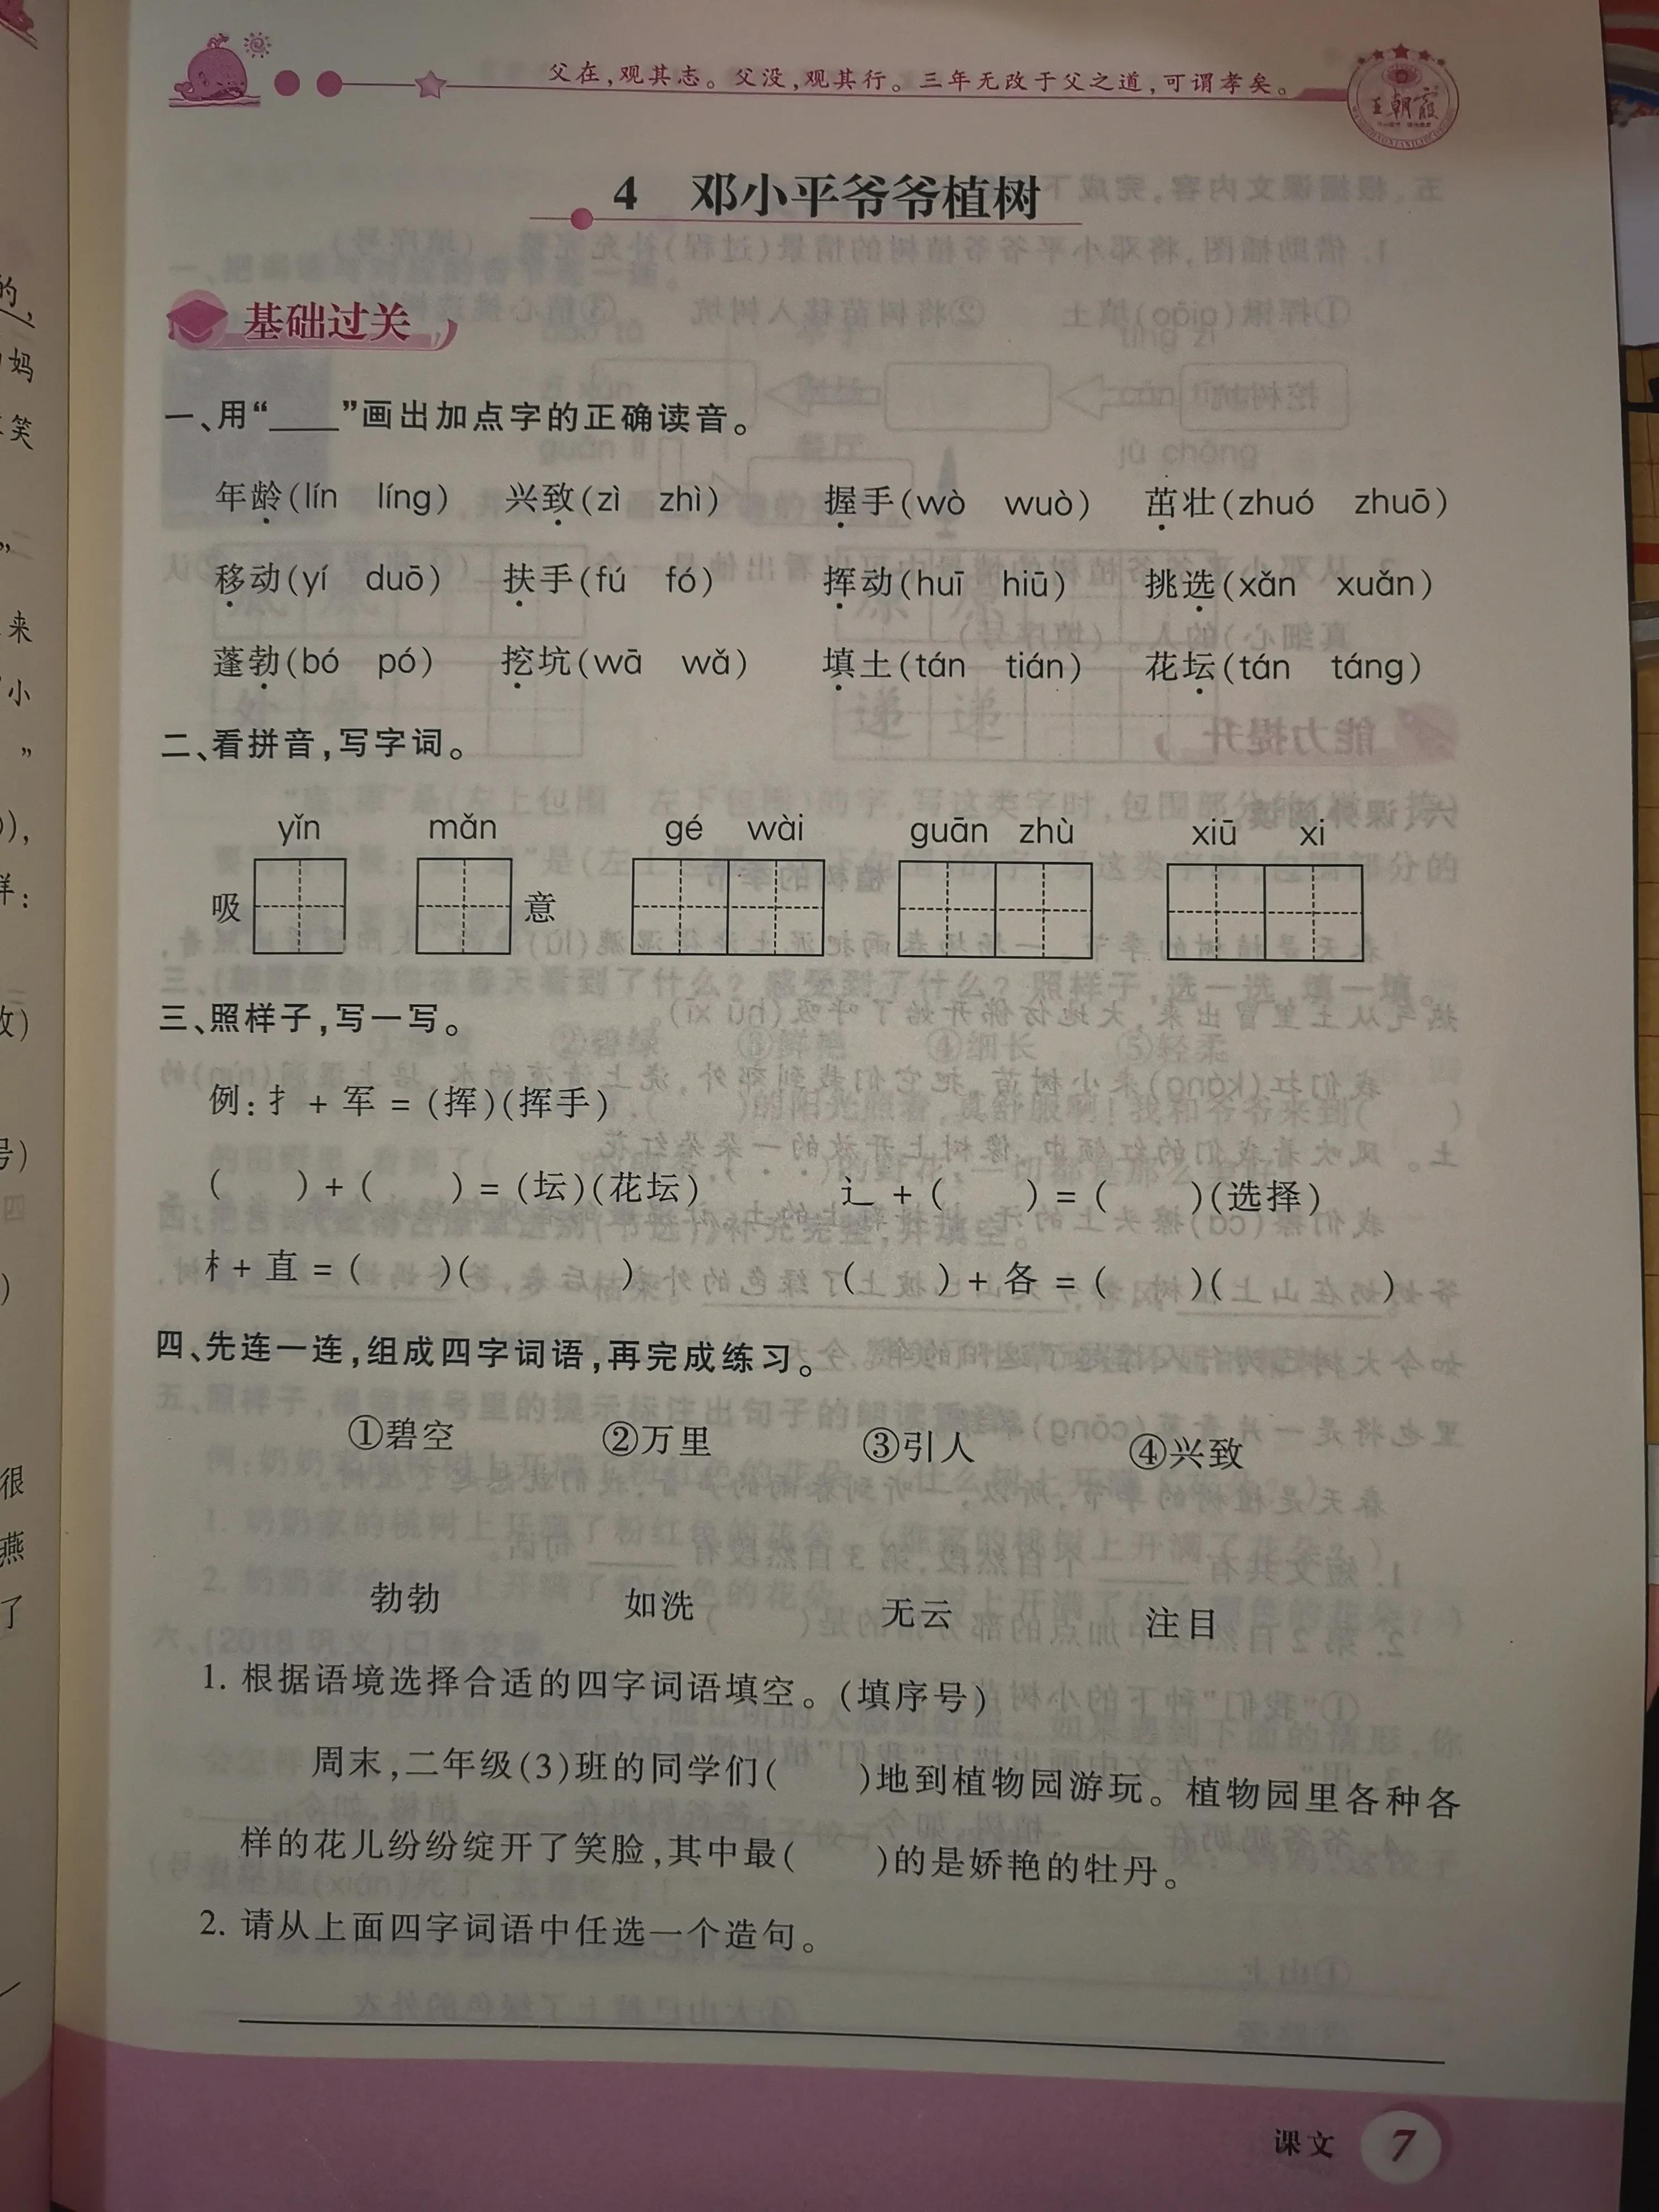 父在,观其志。父没,观其行。三年无改于父之道,可谓孝矣。
王朝霞
4 邓小平爷爷植树
基础过关
一、用“____”画出加点字的正确读音。
年龄(lín líng) 兴致(zì zhì) 握手(wò wuò) 茁壮(zhuó zhuō)
移动(yí duō) 扶手(fú fó) 挥动(huī hiū) 挑选(xǎn xuǎn)
蓬勃(bó pó) 挖坑(wā wǎ) 填土(tán tián) 花坛(tán táng)
二、看拼音,写字词。
yǐn mǎn gé wài guān zhù xiū xi
吸 意
三、照样子,写一写。
例:扌+军=(挥)(挥手)
( )+( )=(坛)(花坛) 辶+( )=( )(选择)
木+直=( )( ) ( )+各=( )( )
四、先连一连,组成四字词语,再完成练习。
①碧空 ②万里 ③引人 ④兴致
勃勃 如洗 无云 注目
1. 根据语境选择合适的四字词语填空。(填序号)
周末,二年级(3)班的同学们( )地到植物园游玩。植物园里各种各
样的花儿纷纷绽开了笑脸,其中最( )的是娇艳的牡丹。
2. 请从上面四字词语中任选一个造句。
课文 7